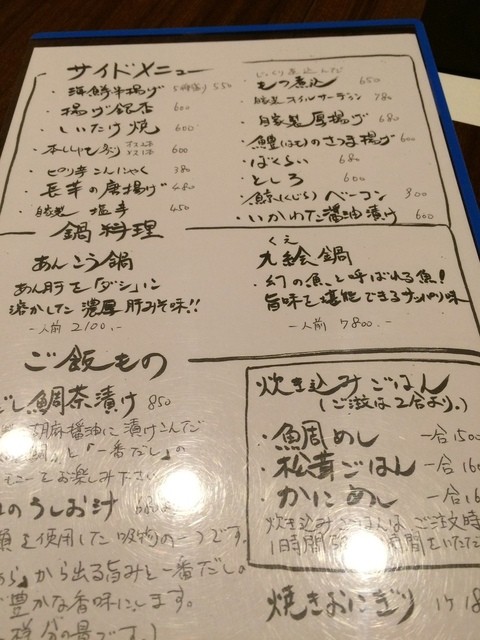 サイドメニュー
・海鮮半揚げ 550
・揚げ銀杏 600
・しいたけ焼 600
・本ししゃも炙り
・ピリ辛こんにゃく 380
・長芋の唐揚げ 480
・自家製 塩辛 450
じっくり煮込んだ
・もつ煮込 650
・自家製オイルサーディン 780
・自家製厚揚げ 680
・鱧(はも)のさつま揚げ 600
・ばくらい 680
・としろ 600
・鯨(くじら)ベーコン 900
・いかわた醤油漬け 600
鍋料理
あんこう鍋
あん肝を「ダシ」に
溶かした濃厚肝みそ味!!
一人前 2100.-
くえ
九絵鍋
・幻の魚、と呼ばれる魚!
旨味を堪能できるサッパリ味
一人前 7800.-
ご飯もの
だし鯛茶漬け 850
胡麻醤油に漬けこんだ
と「一番だし」の
をお楽しみ下さい
のうしお汁
を使用した吸物の一つです。
あら」から出る旨みと一番だしの
豊かな香味にします。
様分の量です。)
炊き込みごはん
(ご注文は2合より。)
・魚周めし 一合1500
・松茸ごはん 一合160
・かにめし 一合16
炊き込みごはんは、ご注文時
1時間
焼きおにぎり 1ケ 18